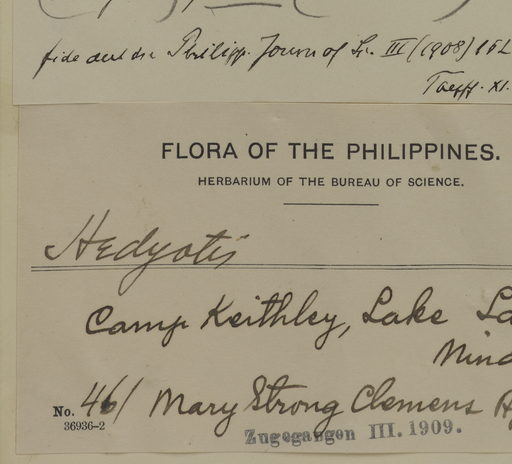 Philipp. Journ of Sc. III (1908)
FLORA OF THE PHILIPPINES.
HERBARIUM OF THE BUREAU OF SCIENCE.
Hedyotis
Camp Keithley, Lake La
Mind
No. 461 Mary Strong Clemens
36936-2
Zugegangen III. 1909.